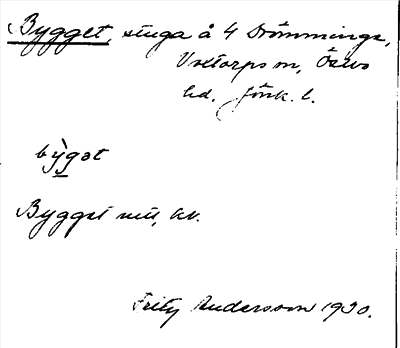 Bygget, stuga å 4 Drömminge,
Vxtorps sn, Östbo
hd. Jönk. l.
bỳ̱gət
Bygget nu, kv.
Fritz Andersson 1930.